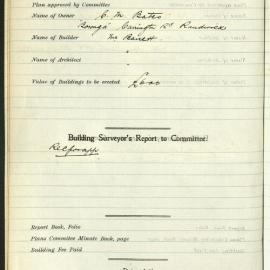 Plan approved by Committee
Name of Owner C. M. Bates
Canberra St Randwick
Name of Builder Mr Barrett
Name of Architect "
Value of Buildings to be erected £600
Building Surveyor's Report to Committee:
Rec for app
Report Book, Folio
Plans Committee Minute Book, page
Building Fee Paid